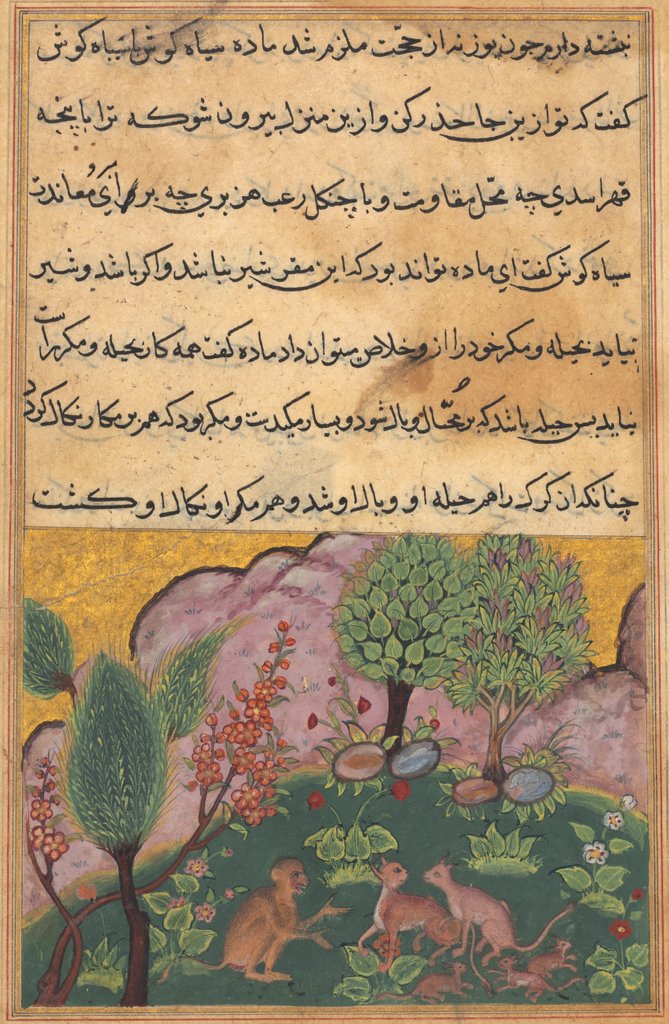 نشسته دارم چون بوزنه از حجّت ملزم شد ماده سیاه کوش با سیاه کوش
کفت که تو ازین جا حذر کن و ازین منزل بیرون شو که ترا با پنجه
قهر اسدی چه محلّ مقاومت و با چنکل رعب هزبری چه برک آی معاندت
سیاه کوش کفت ای ماده تواند بود که این مقر شیر نباشد و اکر باشد و شیر
بیاید بحیله و مکر خود را ازو خلاص میتوان داد ماده کفت همه کار بحیله و مکر راست
نیاید بس حیله باشد که بر محتال وبال شود و بسیار مکیدت و مکر بود که هم بر مکار نکال کردد
چنانکه آن کرک را هم حیله او وبال او شد و هم مکر او نکال او کشت